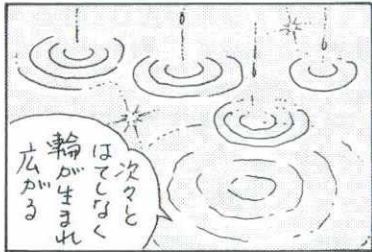 次々と
はてしなく
輪が生まれ
広がる